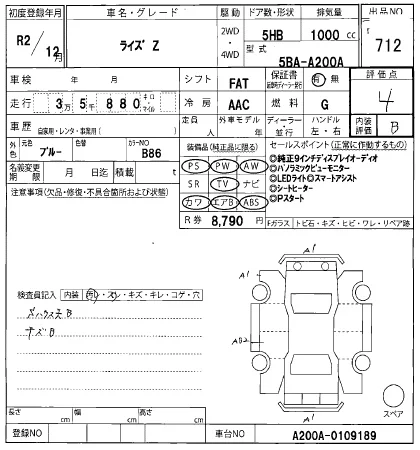 初度登録年月 車名・グレード 駆動 ドア数・形状 排気量 出品NO
R2/12月 ライズ Z 2WD・4WD 5HB 1000 cc 712
型式 5BA-A200A
車検 年 月 シフト FAT 保証書 有・無 評価点
走行 3万5千880 キロ・マイル 冷房 AAC 燃料 G 4
車歴 自家用・レンタ・事業用( ) 定員 人 外車モデル 年 ディーラー・並行 ハンドル 左・右 内装評価 B
外色 元色 ブルー 色替 カラーNO B86
装備品(純正品に限る) セールスポイント(正常に作動するもの)
名義変更期限 月 日迄 積載 t
PS PW AW
SR TV ナビ
カワ エアB ABS
R券 8,790 円
◎純正9インチディスプレイオーディオ
◎パノラミックビューモニター
◎LEDライト◎スマートアシスト
◎シートヒーター
◎Pスタート
注意事項(欠品・修復・不具合箇所および状態)
Fガラス トビ石・キズ・ヒビ・ワレ・リペア跡
検査員記入 内装 ・スレ・キズ・キレ・コゲ・穴
キズB
A1
A1
AB2
A1
スペア
長さ cm 幅 cm 高さ cm
登録NO 車台NO A200A-0109189